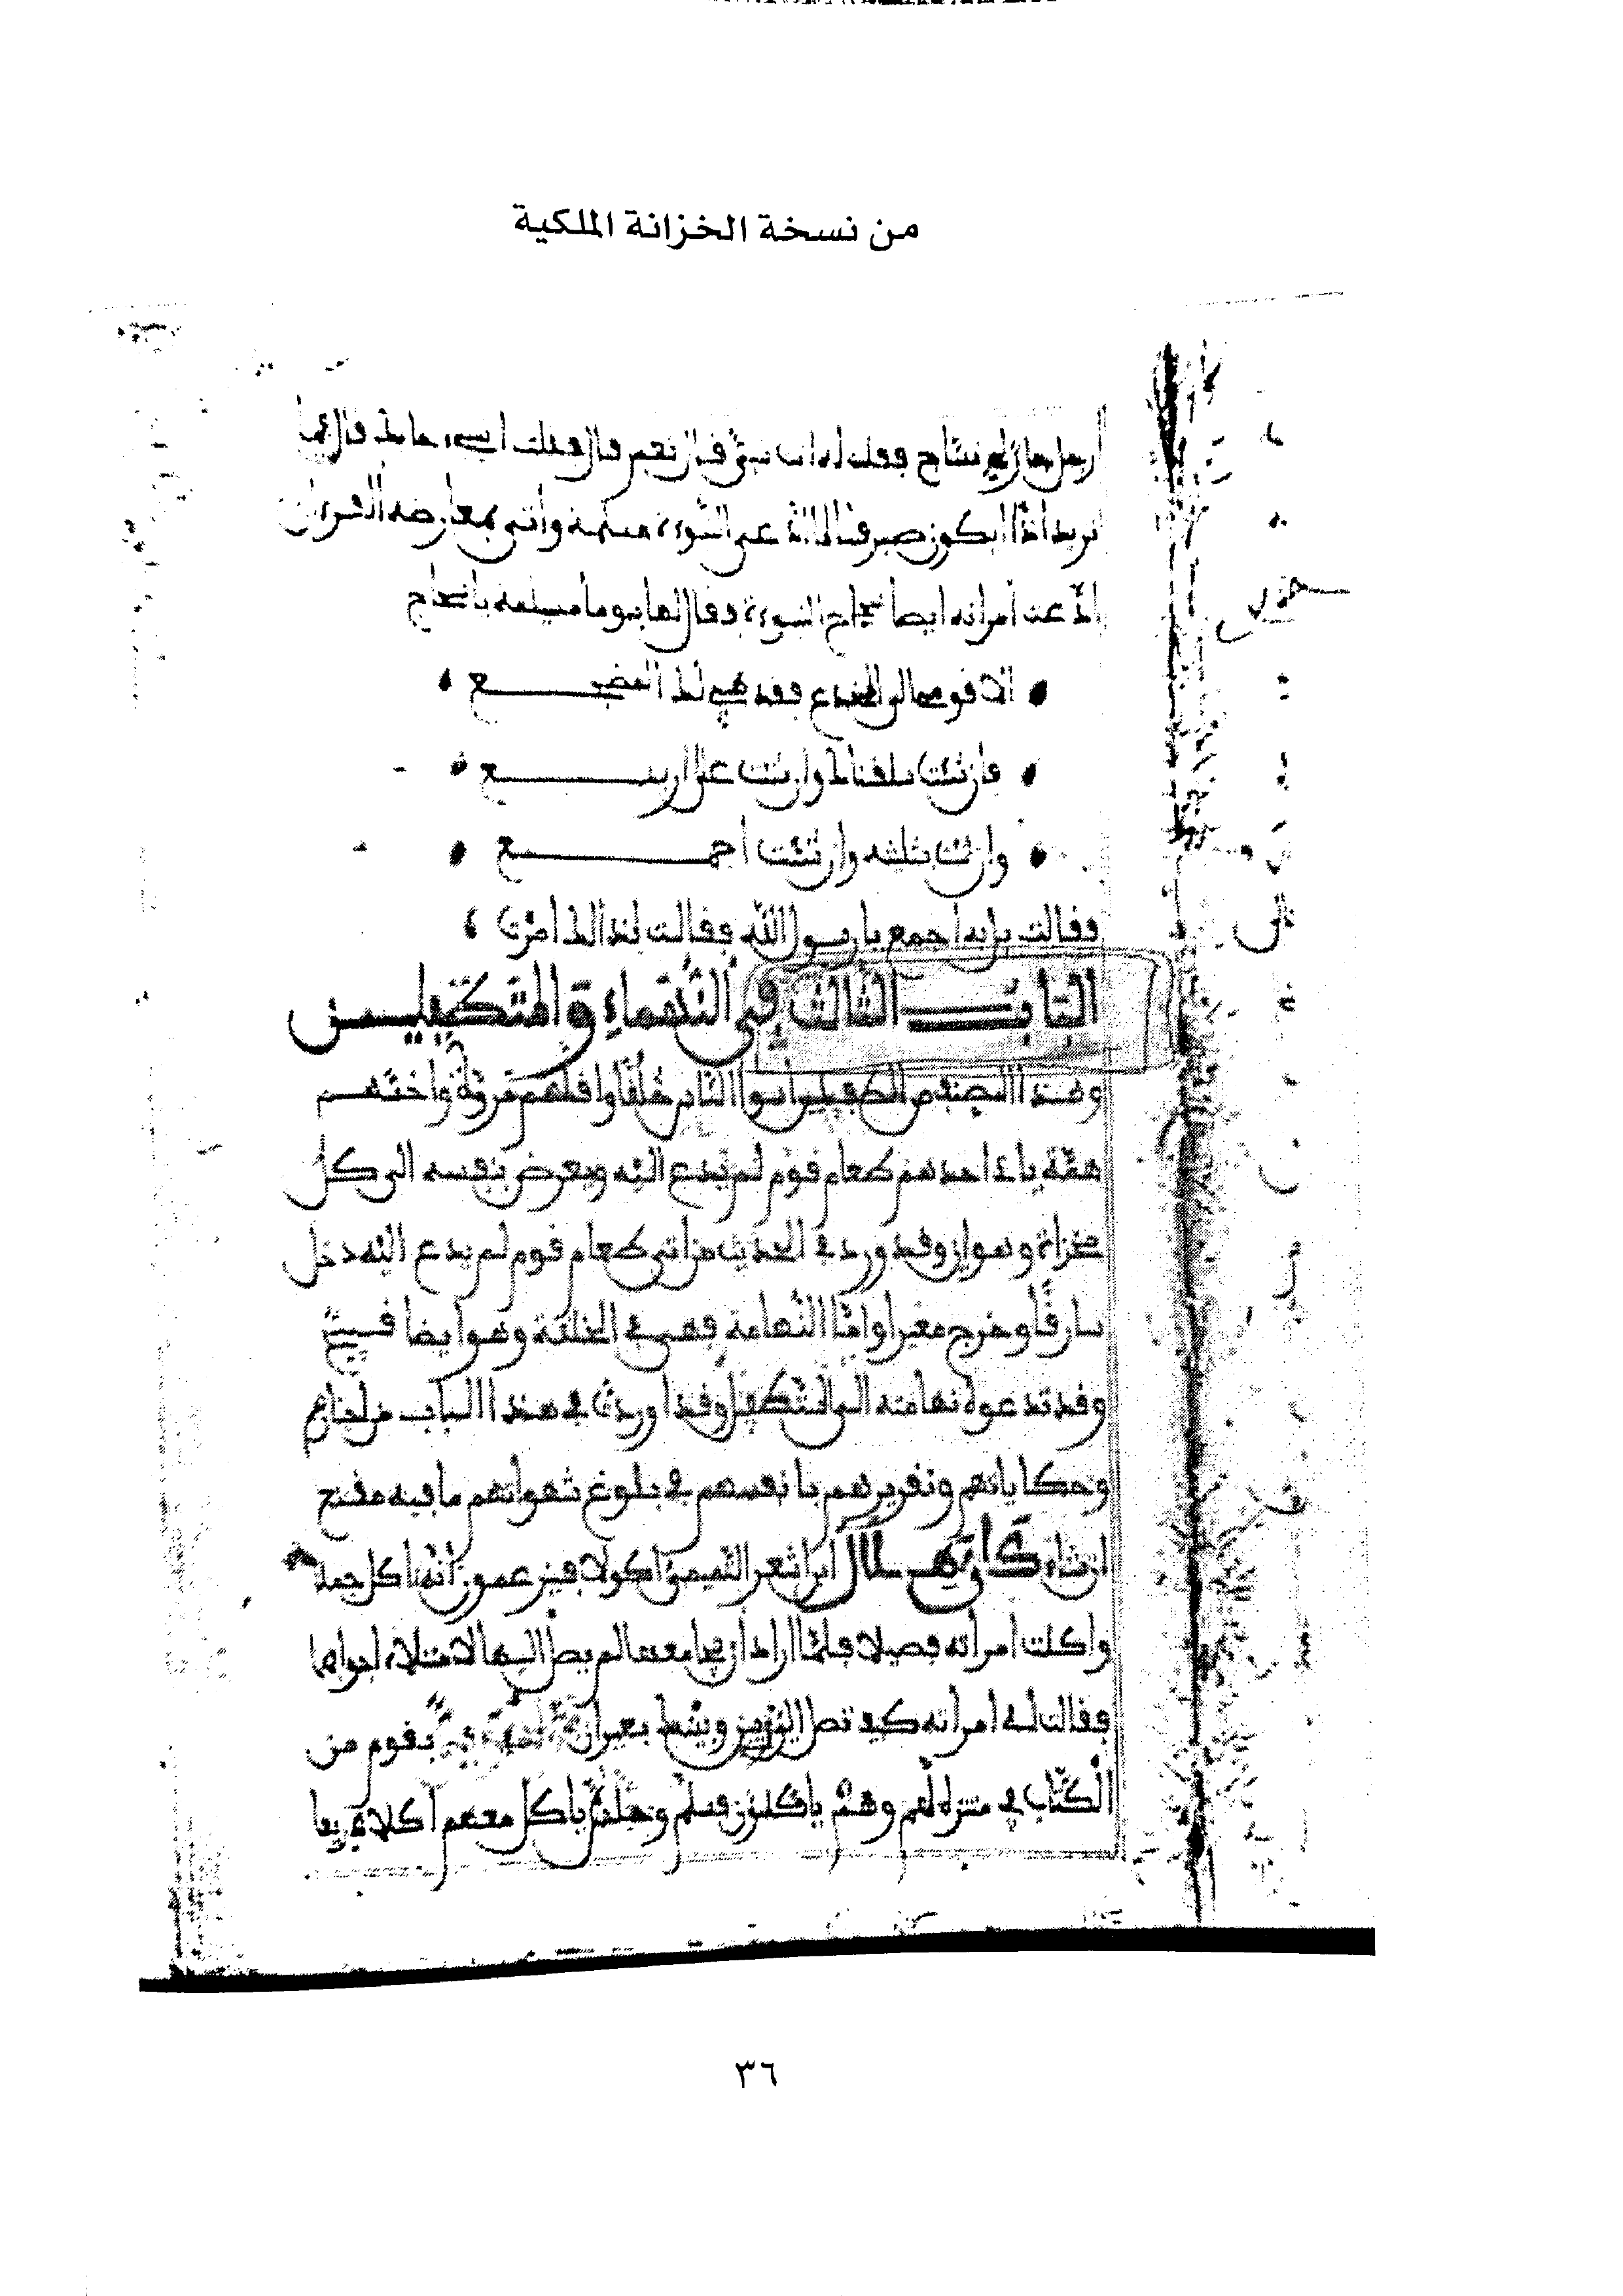 من نسخة الخزانة الملكية
فقلت له انت نبي قال نعم قال فقلت
صبرفنا ادعى النبوءة مسيلمة واتى بمعارضة القرءان
ادعت امراته ايضا سجاح النبوءة وقال لها يوما مسيلمة يا سجاح
الا قومي الى المخدع فقد هيي لك المضجع
فان شئت سلقناك وان شئت على اربع
وان شئت بثلثيه وان شئت اجمع
وقالت بل به اجمع يا رسول الله فقالت بذالك امرت
الباب الثالث في النهماء والمتطفلين
وهذا الصنف من الطفيليين اسوا الناس خلقا واقلهم مروءة واخسهم
همة ياتي احدهم طعام قوم لم يدع اليه ويعرض بنفسه الى كل
وهوان وقد ورد في الحديث من اتى طعام قوم لم يدع اليه دخل
سارقا وخرج مغيرا واما النهامة فهي في الخلقة وهو ايضا قبيح
وقد تدعوه نهامته الى التطفل وقد اوردت في هذا الباب من
وحكاياتهم وتغريرهم بانفسهم في بلوغ شهواتهم ما فيه مقنع
ان شاء كان هلال ابن اشعر التميمي اكولا فيزعمون انه اكل جملا
واكلت امراته فصيلا فلما اراد ان يجامعها لم يصل اليها لامتلاء اجوافهما
فقالت له امراته كيف تصل الي وبيننا بعيران بقوم من
الكتاب في منزل لهم وهم ياكلون فسلم وجلس ياكل معهم اكلا
٣٦